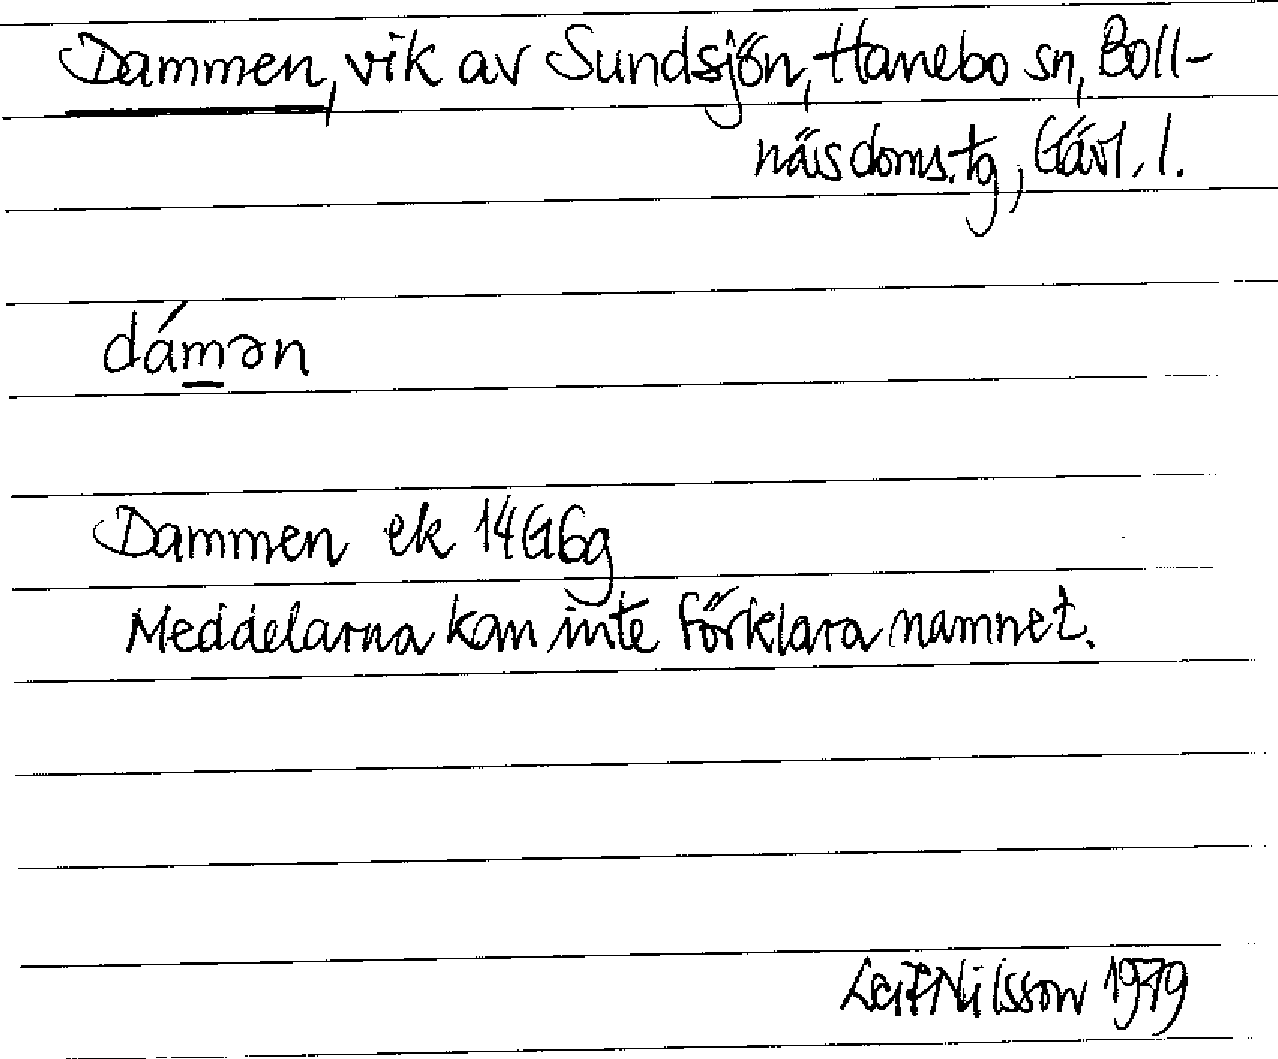 Dammen, vik av Sundsjön, Hanebo sn, Boll-
näs doms.tg, Gävl. l.
dámən
Dammen ek 14G6g
Meddelarna kan inte förklara namnet.
Leif Nilsson 1979